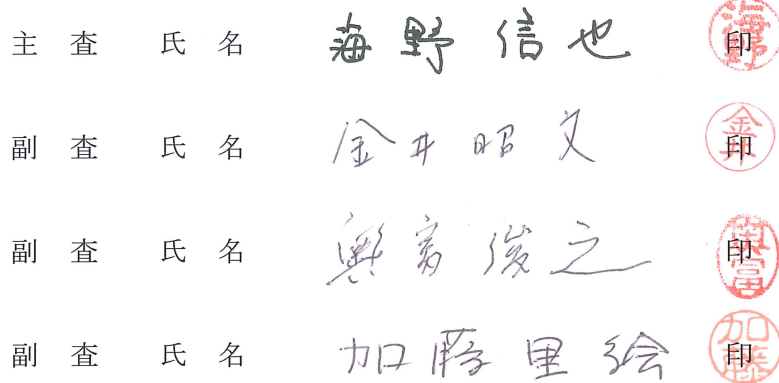 主査 氏名 海野信也 印
副査 氏名 金井昭文 印
副査 氏名 奥富俊之 印
副査 氏名 加藤里絵 印